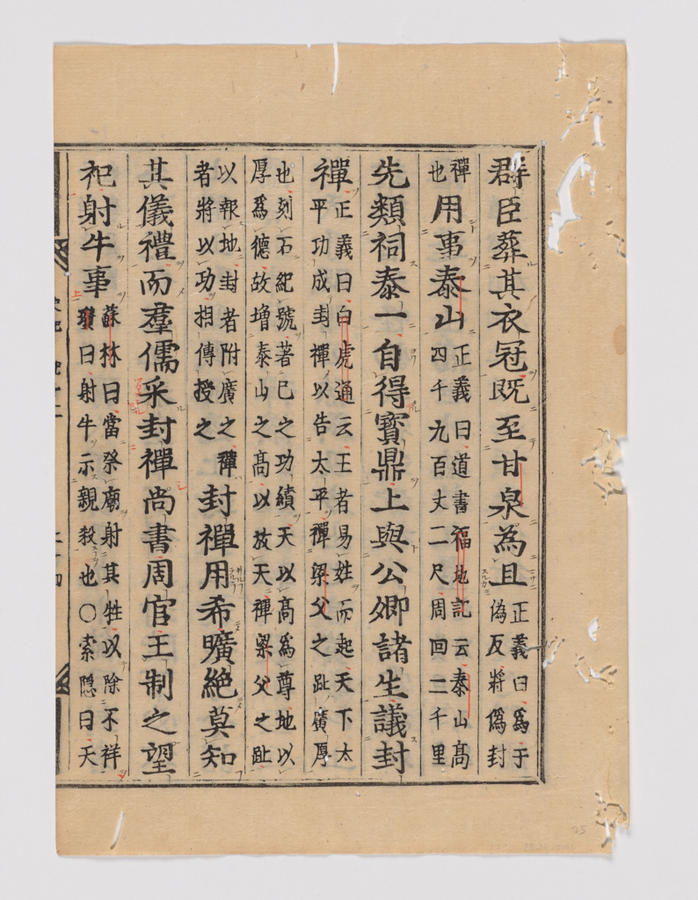 群臣葬其衣冠旣至甘泉為且
正義曰爲于
偽反將僞封
禪
也
用事泰山
正義曰道書福地記云泰山高
四千九百丈二尺周回二千里
先類祠泰一自得寶鼎上與公卿諸生議封
禪
正義曰白虎通云王者易姓而起天下太
平功成封禪以告太平禪梁父之趾廣厚
也刻石紀號著已之功績天以高爲尊地以
厚爲德故增泰山之高以放天禪梁父之趾
以報地封者附廣之禪
者將以功相傳授之
封禪用希曠絶莫知
其儀禮而羣儒采封禪尚書周官王制之望
祀射牛事
蘇林曰當祭廟射其牲以除不祥
瓚曰射牛示親殺也○索隠曰天